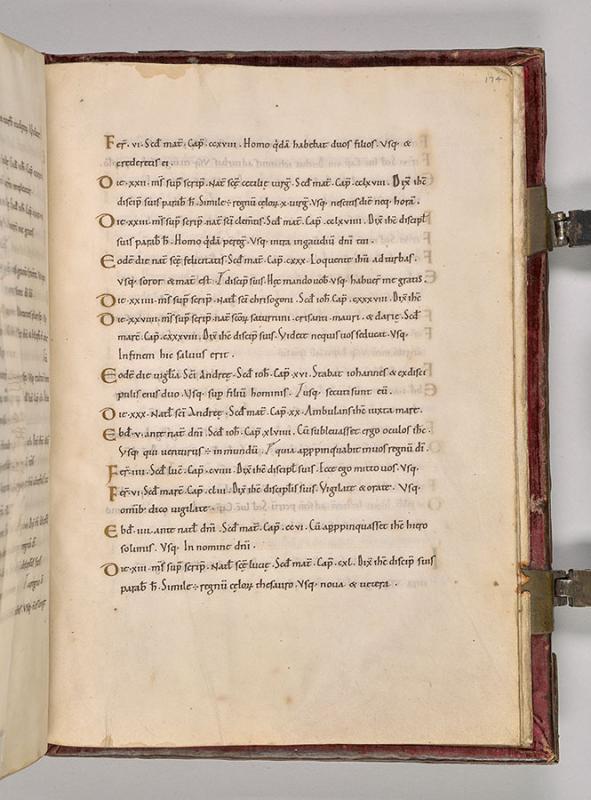 174
Fer̄. vi. Sec̄d mat̄. Cap̄. ccxviii. Homo qdā habebat duos filios. Vsq; &
credereas ei.
Die. xxii. m̄s sup̄ scrip̄. Nat̄ scē cecilie uirḡ. Sec̄d mat̄. Cap̄. cclxviii. Dix̄ ihē
discip̄ suis parab̄ h̄. Simile ÷ regnū celoꝝ x uirḡ. Vsq; nescitis diē neq; horā.
Die. xxiii. m̄s sup̄ scrip̄. nat̄ scī clem̄tis. Sec̄d mat̄. Cap̄. cclxviiii. Dix̄ ihē discipl̄
suis parab̄ h̄. Homo qdā peregr̄. Vsq; intra ingaudiū dn̄i tui.
Eodē die nat̄ scē felicitatis. Sec̄d mat̄. Cap̄. cxxx. Loquente ihū ad turbas.
Vsq; soror & mat̄ est. discip̄ suis. Hec mando uob̄. Vsq; habuer̄ me gratis.
Die. xxiiii. m̄s sup̄ scrip̄. Natl̄ scī chrisogoni. Sec̄d ioh̄. Cap̄. cxxxviii. Dix̄ ihē
Die. xxviiii. m̄s sup̄ scrip̄. nat̄ scōꝝ saturnini. crisanti. mauri. & darie. Sec̄d
marc̄. Cap̄. cxxxviii. Dix̄ ihē discip̄ suis. Videte nequis uos seducat. Vsq;
Infinem hic saluus erit.
Eodē die uigl̄ia Scī Andreę. Sec̄d ioh̄. Cap̄. xvi. Stabat iohannes & ex disci
pulis eius duo. Vsq; sup̄ filiū hominis. usq; secuti sunt eū.
Die. xxx. Natl̄ scī Andreę. Sec̄d mat̄. Cap̄. xx. Ambulans ihē iuxta mare.
Ebd̄. v. ante nat̄ dn̄i. Sec̄d ioh̄. Cap̄. xlviiii. Cū subleuasset ergo oculos ihē.
Vsq; qui uenturus ÷ in mundū. quia appropinquabit in uos regnū dī.
Fer̄. iiii. Sec̄d luc̄. Cap̄. cviiii. Dix̄ ihē discipl̄ suis. Ecce ego mitto uos. Vsq;
Fer̄. vi. Sec̄d marc̄. Cap̄. cliii. Dix̄ ihē discipl̄is suis. Vigilate & orate. Vsq;
omib; dico uigilate.
Ebd̄. iiii. ante natl̄ dn̄i. Sec̄d mat̄. Cap̄. ccvi. Cū appropinquasset ihē hiero
solimis. Vsq; In nomine dn̄i.
Die. xiii. m̄s sup̄ scrip̄. Natl̄ scē lucię. Sec̄d mat̄. Cap̄. cxl. Dix̄ ihē discip̄ suis
parab̄ h̄. Simile ÷ regnū celoꝝ thesauro. Vsq; noua & uetera.